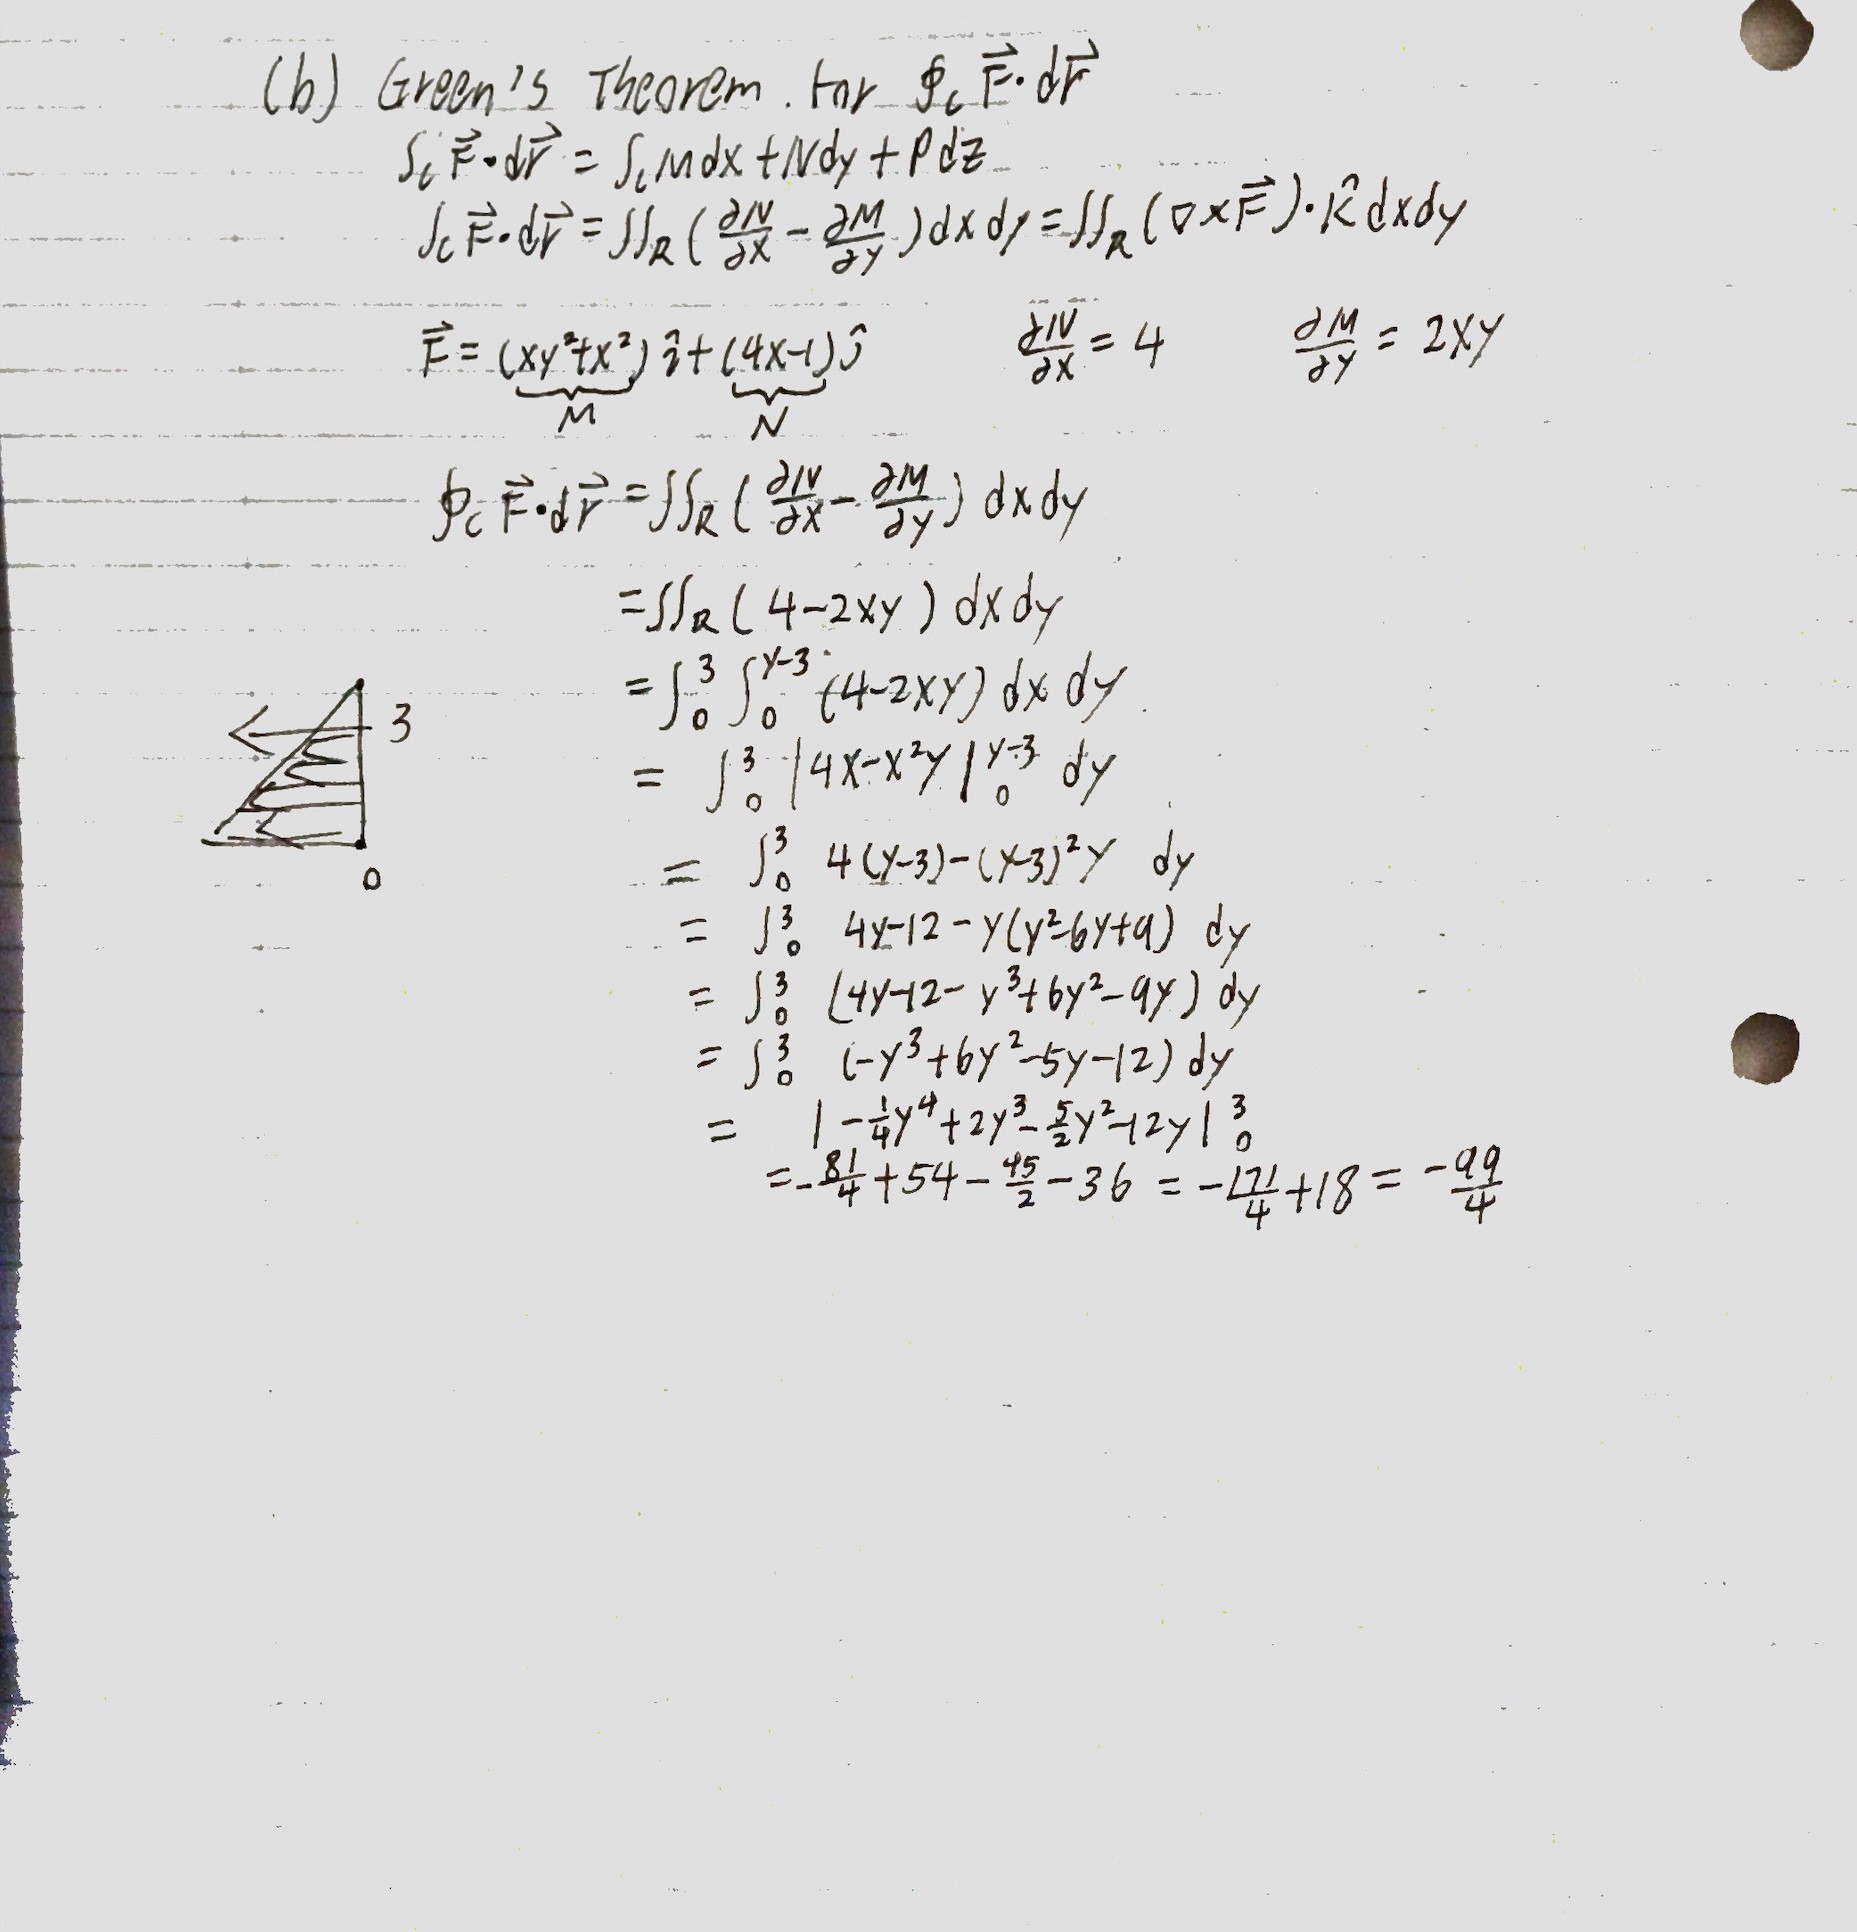 (b) Green's Theorem. for ∮_C F⃗·dr⃗
∫_C F⃗·dr⃗ = ∫_C Mdx + Ndy + Pdz
∫_C F⃗·dr⃗ = ∬_R (∂N/∂x − ∂M/∂y) dx dy = ∬_R (∇×F⃗)·k̂ dxdy
F⃗ = (xy²+x²) î + (4x−1) ĵ    ∂N/∂x = 4    ∂M/∂y = 2xy
M    N
∮_C F⃗·dr⃗ = ∬_R (∂N/∂x − ∂M/∂y) dx dy
= ∬_R (4−2xy) dx dy
= ∫_0^3 ∫_0^{y−3} (4−2xy) dx dy
3
= ∫_0^3 |4x−x²y|_0^{y−3} dy
= ∫_0^3 4(y−3)−(y−3)²y dy
0
= ∫_0^3 4y−12−y(y²−6y+9) dy
= ∫_0^3 (4y−12−y³+6y²−9y) dy
= ∫_0^3 (−y³+6y²−5y−12) dy
= |−1/4 y⁴+2y³−5/2 y²−12y|_0^3
= −81/4 + 54 − 45/2 − 36 = −171/4 + 18 = −99/4